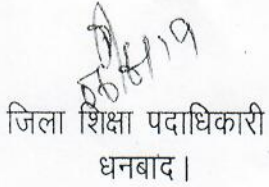 जिला शिक्षा पदाधिकारी
धनबाद।